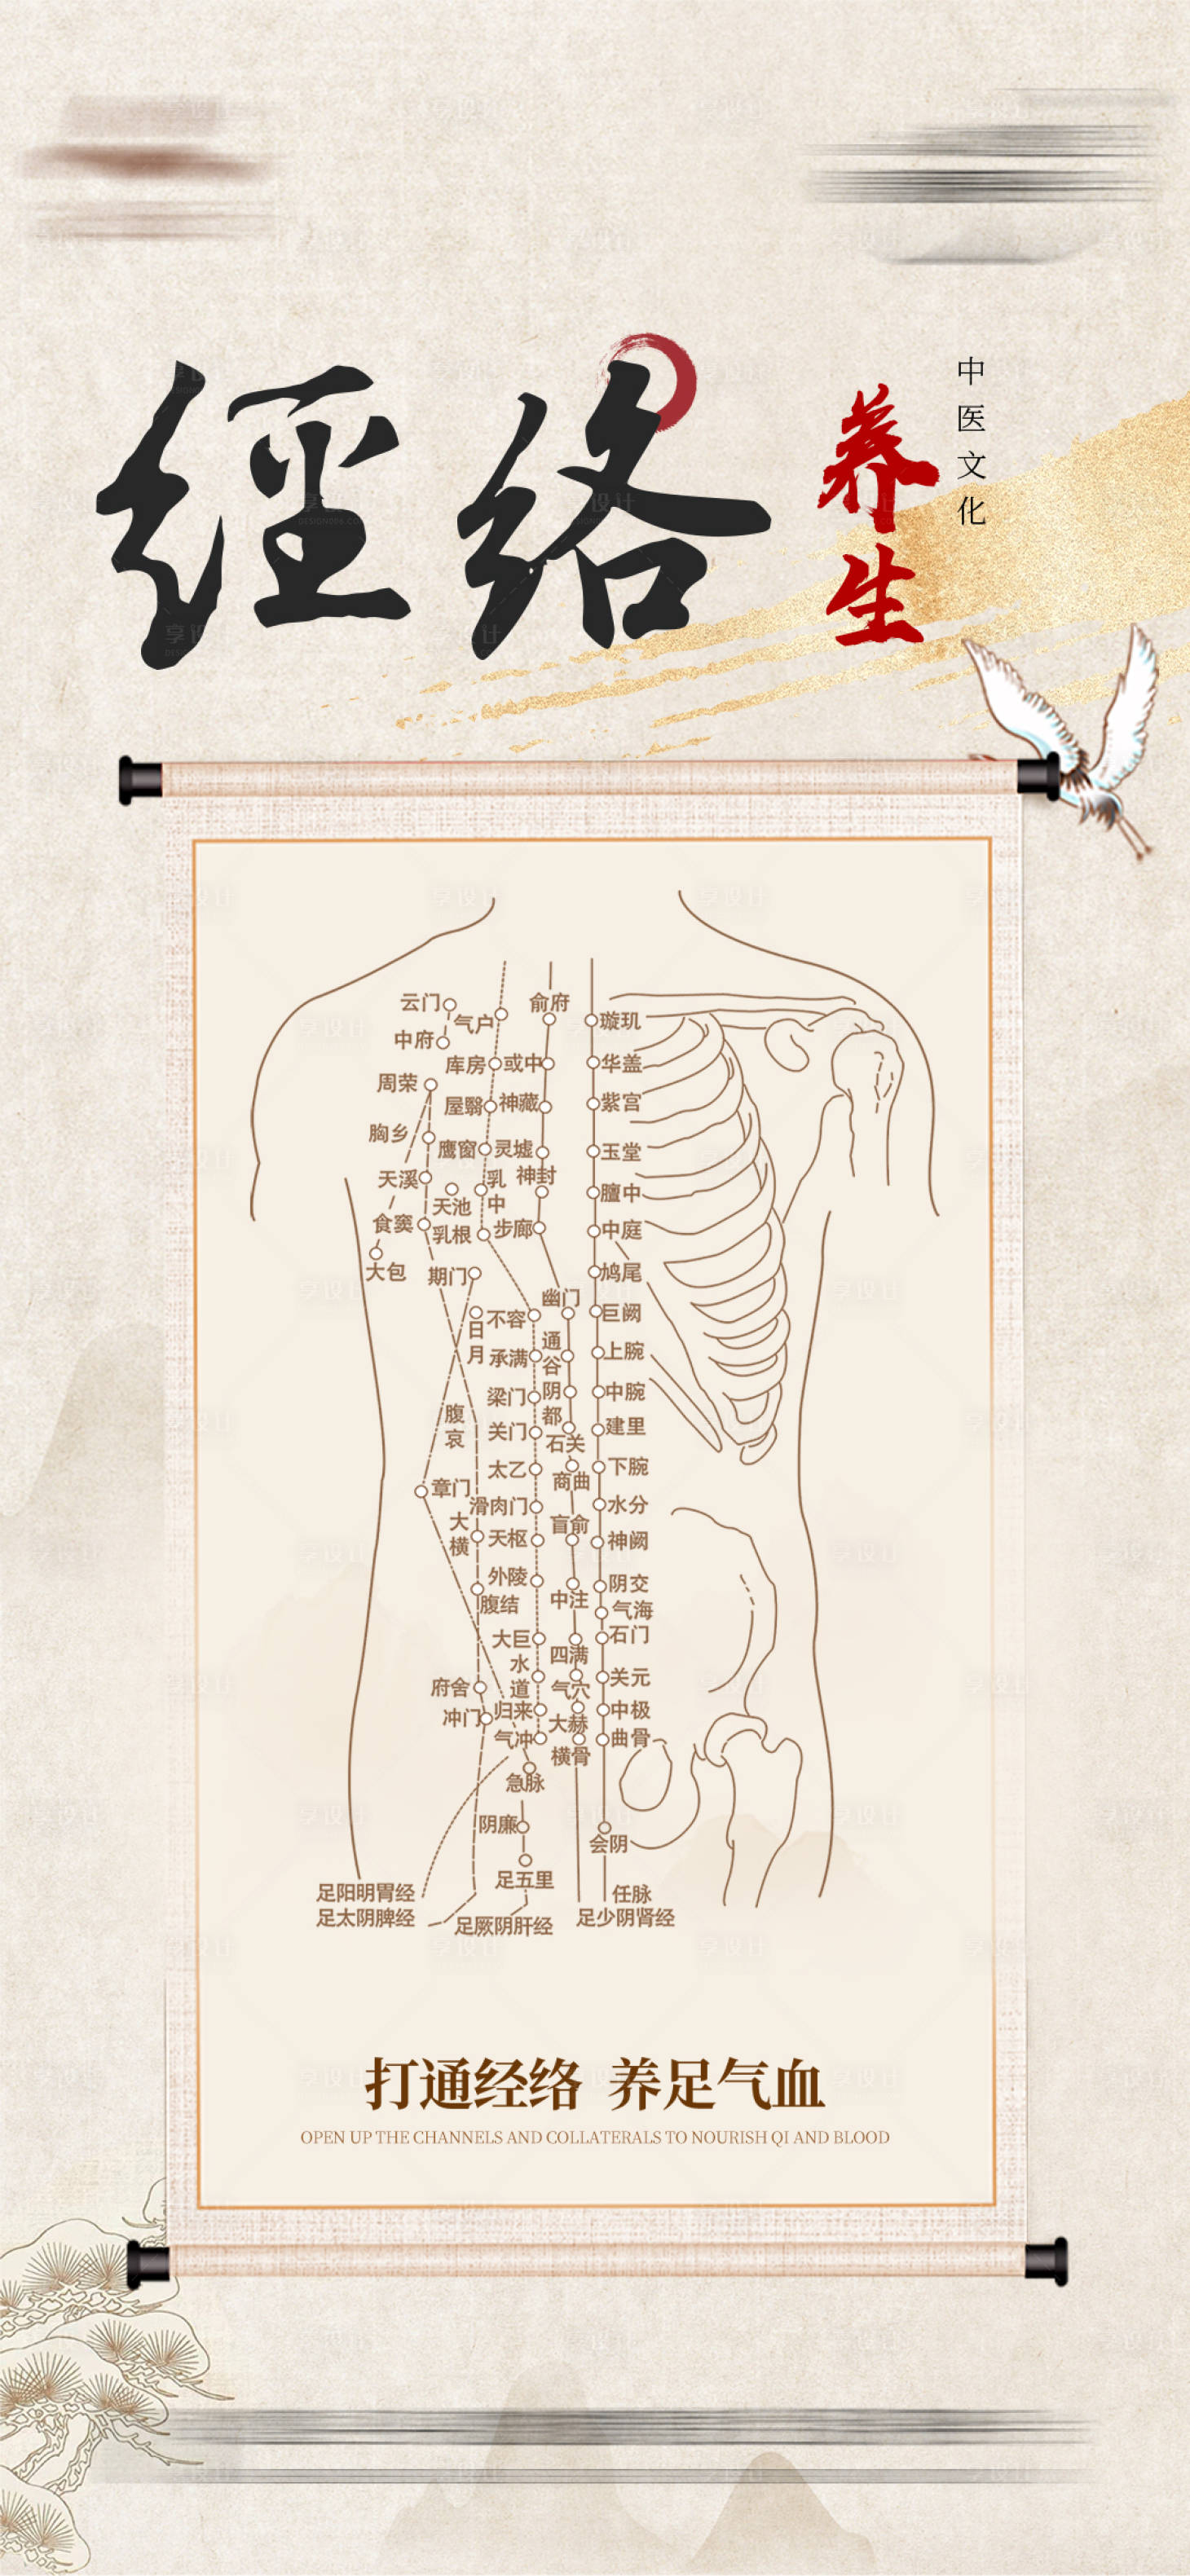 經络
养生
中医文化
云门
气户
俞府
璇玑
中府
库房
或中
华盖
周荣
屋翳
神藏
紫宫
胸乡
鹰窗
灵墟
玉堂
天溪
天池
乳中
神封
膻中
食窦
乳根
步廊
中庭
大包
期门
鸠尾
幽门
日月
不容
巨阙
承满
通谷
上腕
梁门
阴都
中腕
腹哀
关门
石关
建里
太乙
商曲
下腕
章门
滑肉门
水分
大横
天枢
盲俞
神阙
外陵
阴交
腹结
中注
气海
大巨
石门
水道
四满
关元
府舍
气穴
冲门
归来
大赫
中极
气冲
横骨
曲骨
急脉
阴廉
会阴
足五里
足阳明胃经
任脉
足太阴脾经
足厥阴肝经
足少阴肾经
打通经络 养足气血
OPEN UP THE CHANNELS AND COLLATERALS TO NOURISH QI AND BLOOD
享设计